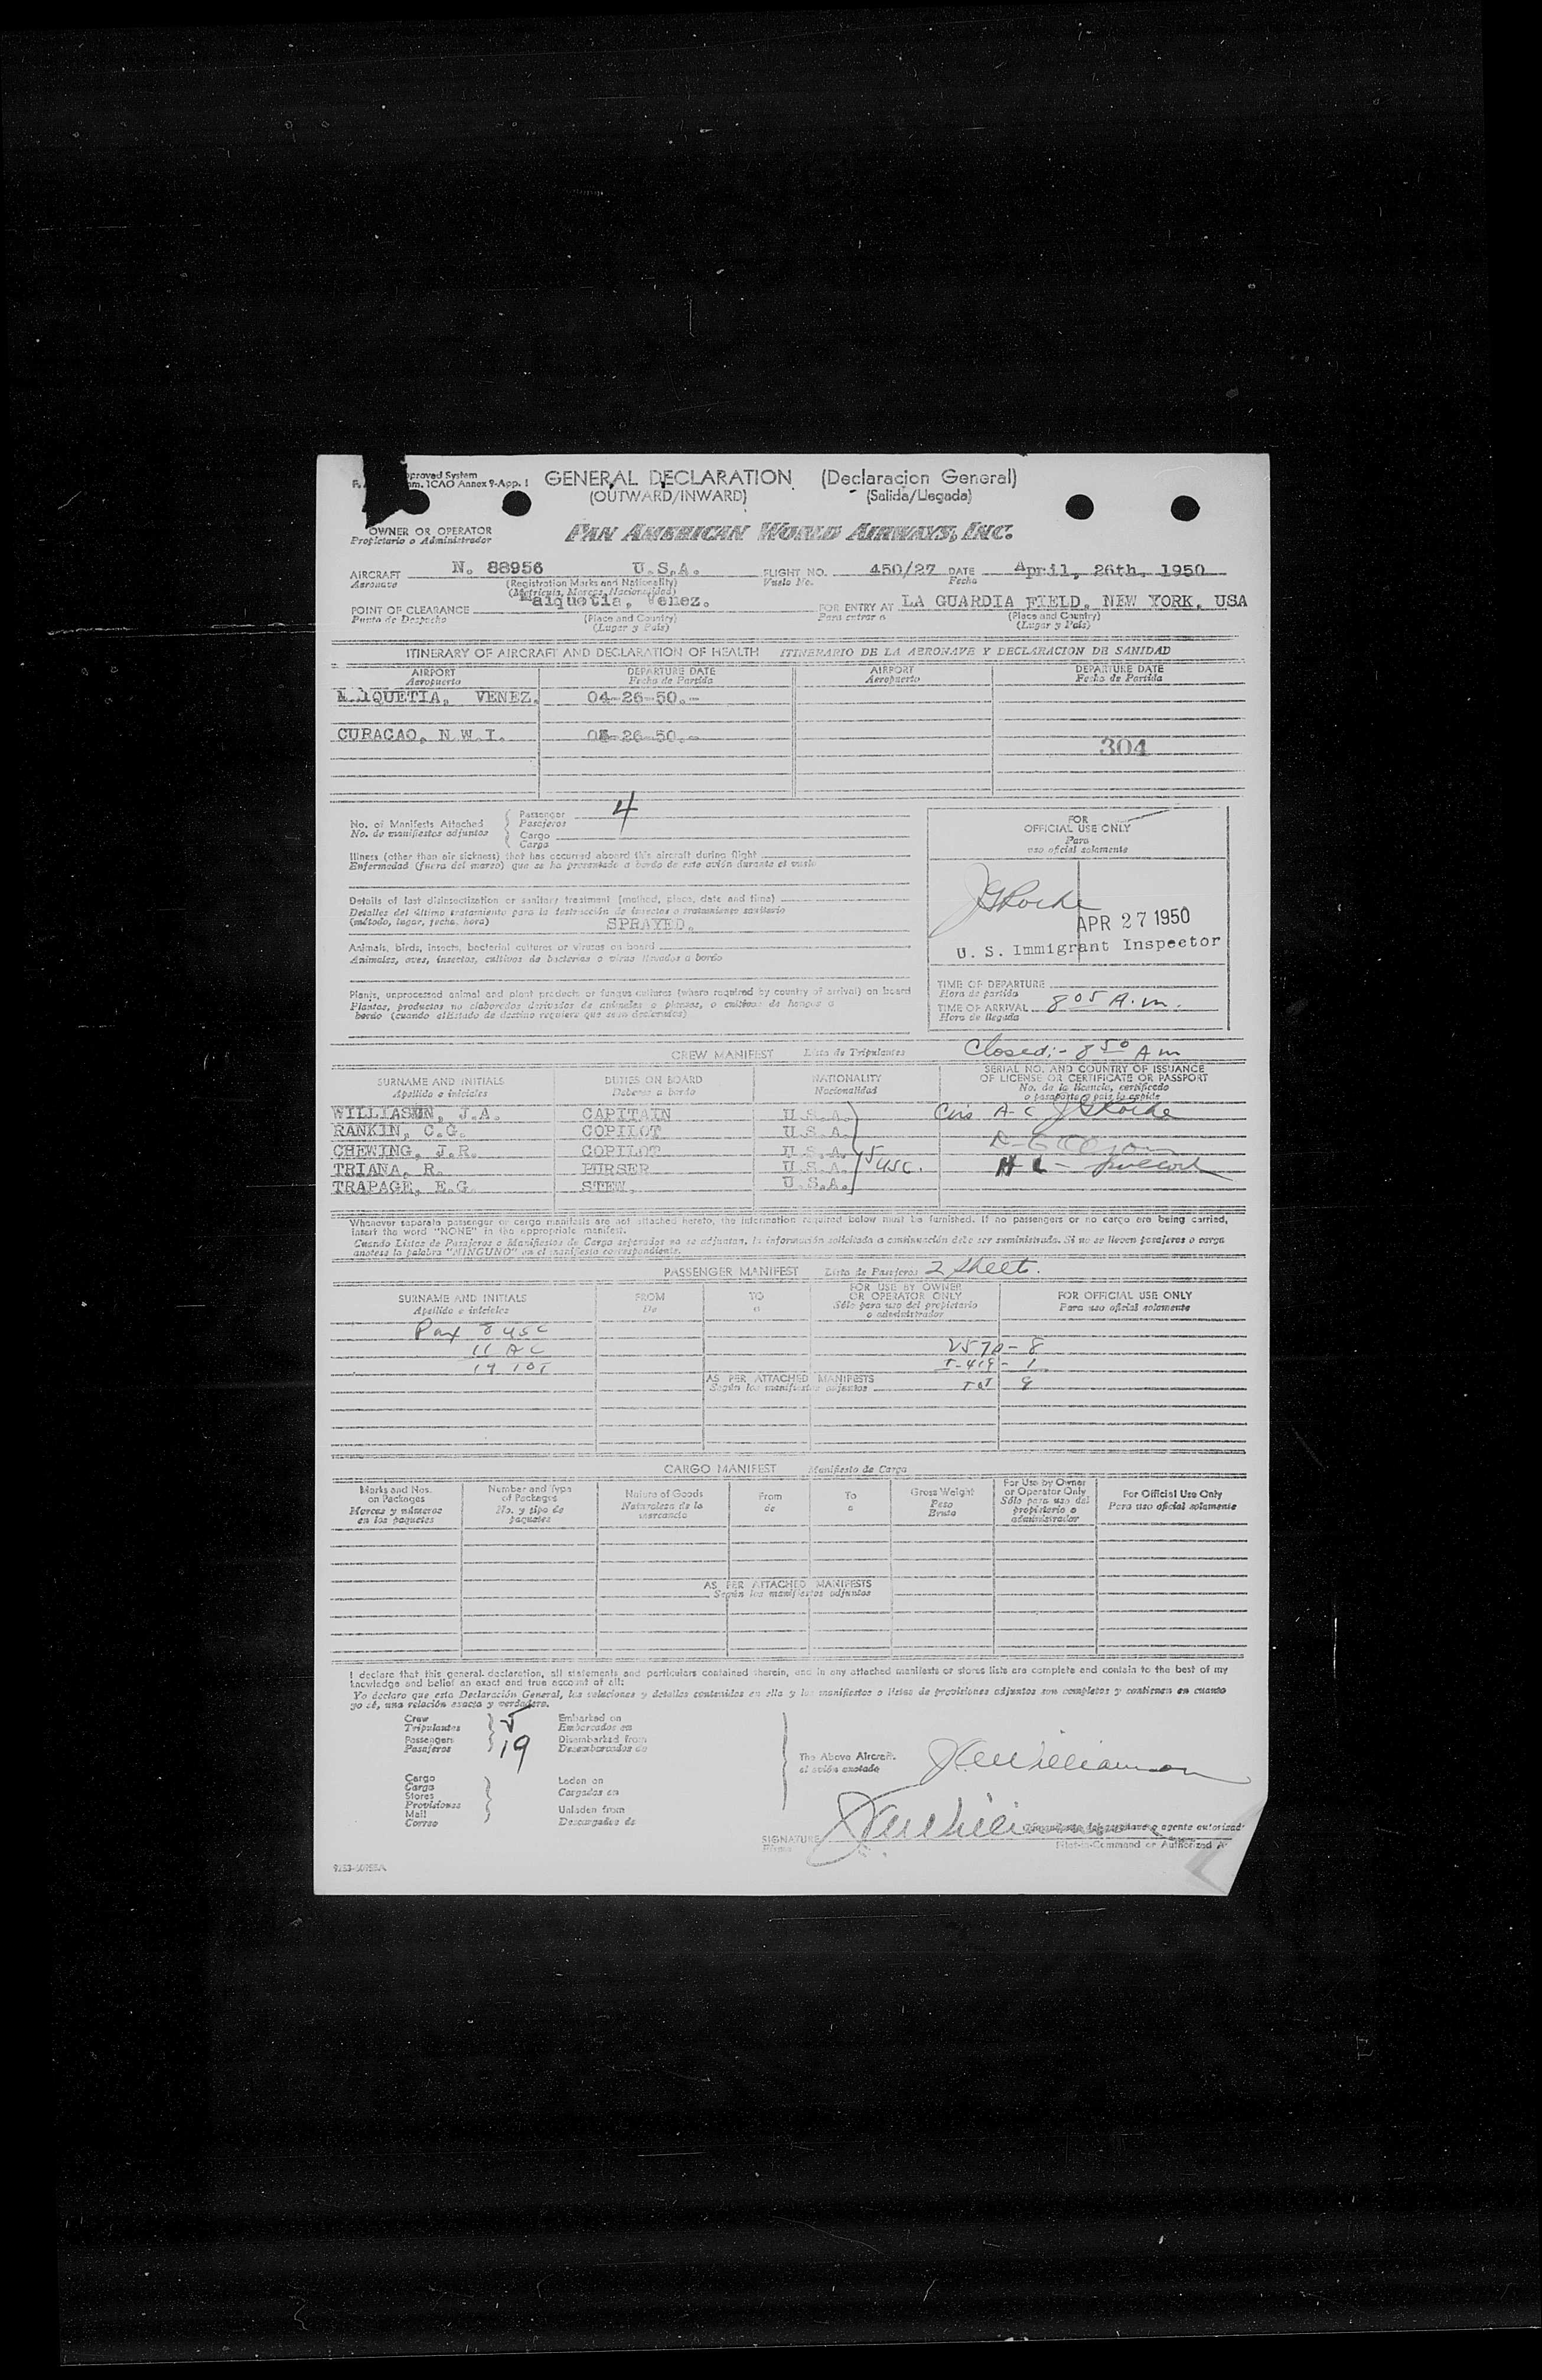 pproved System
m. ICAO Annex 9-App. 1
GENERAL DECLARATION (Declaracion General)
(OUTWARD/INWARD) (Salida/Llegada)
OWNER OR OPERATOR
Propietario o Administrador
PAN AMERICAN WORLD AIRWAYS, INC.
AIRCRAFT N. 88956 U.S.A. FLIGHT NO. 450/27 DATE April, 26th, 1950
Aeronave (Registration Marks and Nationality) Vuelo No. Fecha
(Matricula, Marcas, Nacionalidad)
POINT OF CLEARANCE Maiquetia, Venez. FOR ENTRY AT LA GUARDIA FIELD, NEW YORK, USA
Punto de Despacho (Place and Country) Para entrar a (Place and Country)
(Lugar y País) (Lugar y País)
ITINERARY OF AIRCRAFT AND DECLARATION OF HEALTH ITINERARIO DE LA AERONAVE Y DECLARACION DE SANIDAD
AIRPORT DEPARTURE DATE AIRPORT DEPARTURE DATE
Aeropuerto Fecha de Partida Aeropuerto Fecha de Partida
MAIQUETIA, VENEZ. 04-26-50.-
CURACAO, N.W.I. 04-26-50.-
304
No. of Manifests Attached Passenger 4
No. de manifiestos adjuntos Pasajeros
Cargo
Carga
Illness (other than air sickness) that has occurred aboard this aircraft during flight
Enfermedad (fuera del mareo) que se ha presentado a bordo de este avión durante el vuelo
Details of last disinsectization or sanitary treatment (method, place, date and time)
Detalles del último tratamiento para la destrucción de insectos o tratamiento sanitario
(método, lugar, fecha, hora) SPRAYED.
Animals, birds, insects, bacterial cultures or viruses on board
Animales, aves, insectos, cultivos de bacterias o virus llevados a bordo
Plants, unprocessed animal and plant products or fungus cultures (where required by country of arrival) on board
Plantas, productos no elaborados derivados de animales o plantas, o cultivos de hongos a
bordo (cuando el Estado de destino requiera que sean declarados)
FOR
OFFICIAL USE ONLY
Para
uso oficial solamente
APR 27 1950
U. S. Immigrant Inspector
TIME OF DEPARTURE
Hora de partida
TIME OF ARRIVAL 8 05 A.m.
Hora de llegada
Closed:- 8 50 A m
CREW MANIFEST Lista de Tripulantes
SURNAME AND INITIALS DUTIES ON BOARD NATIONALITY SERIAL NO. AND COUNTRY OF ISSUANCE
OF LICENSE OR CERTIFICATE OR PASSPORT
Apellido e iniciales Deberes a bordo Nacionalidad No. de la licencia, certificado
o pasaporte o país lo expide
WILLIASON, J.A. CAPITAIN U.S.A.
RANKIN, C.G. COPILOT U.S.A.
CHEWING, J.R. COPILOT U.S.A.
TRIANA, R. PURSER U.S.A. 5 USC.
TRAPAGE, E.G. STEW. U.S.A.
Whenever separate passenger or cargo manifests are not attached hereto, the information required below must be furnished. If no passengers or no cargo are being carried,
insert the word "NONE" in the appropriate manifest.
Cuando Listas de Pasajeros o Manifiestos de Carga separados no se adjuntan, la información solicitada a continuación debe ser suministrada. Si no se llevan pasajeros o carga
anotese la palabra "NINGUNO" en el manifiesto correspondiente.
PASSENGER MANIFEST Lista de Pasajeros 2 sheets.
SURNAME AND INITIALS FROM TO FOR USE BY OWNER
OR OPERATOR ONLY FOR OFFICIAL USE ONLY
Apellido e iniciales De a Sólo para uso del propietario
o administrador Para uso oficial solamente
Pax 8 USC
11 AC
19 TOT
V570 - 8
I-419 - 1
TOT 9
AS PER ATTACHED MANIFESTS
Según los manifiestos adjuntos
CARGO MANIFEST Manifiesto de Carga
Marks and Nos.
on Packages
Marcas y números
en los paquetes
Number and Type
of Packages
No. y tipo de
paquetes
Nature of Goods
Naturaleza de la
mercancía
From
de
To
a
Gross Weight
Peso
Bruto
For Use by Owner
or Operator Only
Sólo para uso del
propietario o
administrador
For Official Use Only
Para uso oficial solamente
AS PER ATTACHED MANIFESTS
Según los manifiestos adjuntos
I declare that this general declaration, all statements and particulars contained therein, and in any attached manifests or stores lists are complete and contain to the best of my
knowledge and belief an exact and true account of all:
Yo declaro que esta Declaración General, las relaciones y detalles contenidos en ella y los manifiestos o listas de provisiones adjuntos son completos y contienen en cuanto
yo sé, una relación exacta y verdadera.
Crew 5 Embarked on
Tripulantes Embarcados en
Passengers 19 Disembarked from
Pasajeros Desembarcados de
The Above Aircraft.
el avión anotado
Cargo Laden on
Carga Cargados en
Stores
Provisiones
Mail Unladen from
Correo Descargados de
SIGNATURE
Firma
Pilot-in-Command or Authorized A